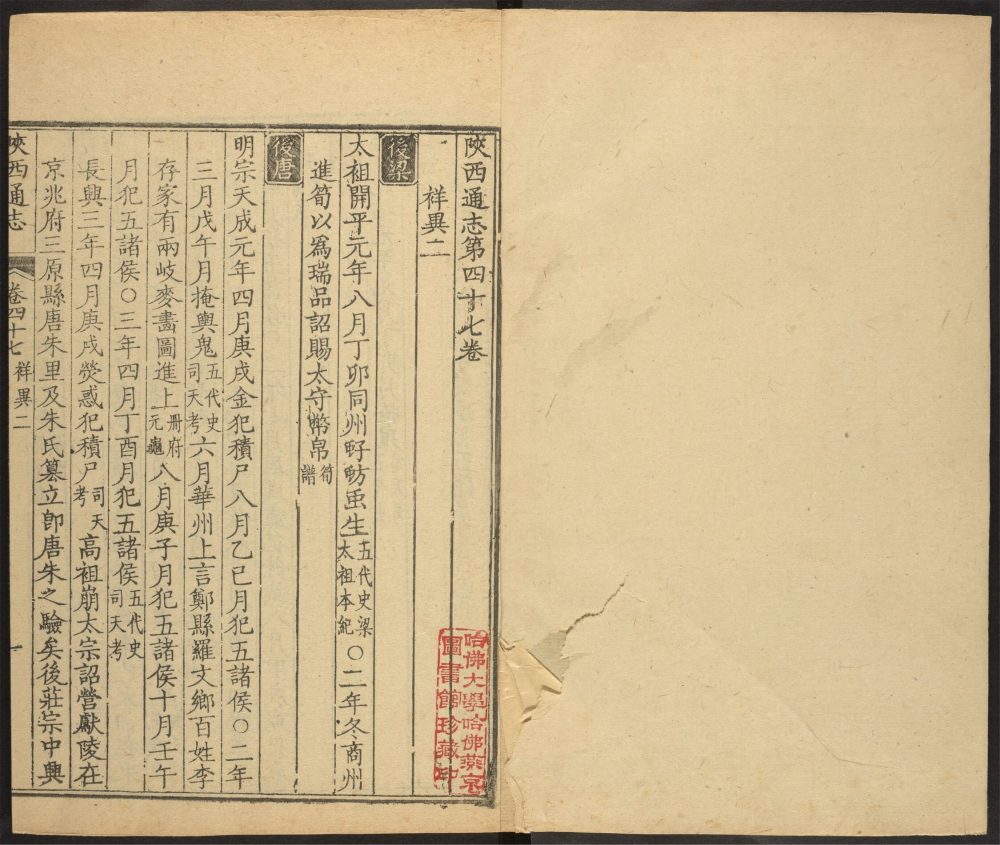 陝西通志第四十七卷
祥異二
後梁
太祖開平元年八月丁卯同州虸蚄虫生五代史梁太祖本紀○二年冬商州
進筍以爲瑞品詔賜太守幣帛筍譜
後唐
明宗天成元年四月庚戌金犯積尸八月乙巳月犯五諸侯○二年
三月戊午月掩輿鬼五代史司天考六月華州上言鄭縣羅文鄉百姓李
存家有兩岐麥畵圖進上冊府元龜八月庚子月犯五諸侯十月壬午
月犯五諸侯○三年四月丁酉月犯五諸侯五代史司天考
長興三年四月庚戌熒惑犯積尸司天考高祖崩太宗詔營獻陵在
京兆府三原縣唐朱里及朱氏篡立卽唐朱之驗矣後莊宗中興
陝西通志 卷四十七 祥異二 一
哈佛大學哈佛燕京
圖書館珍藏印